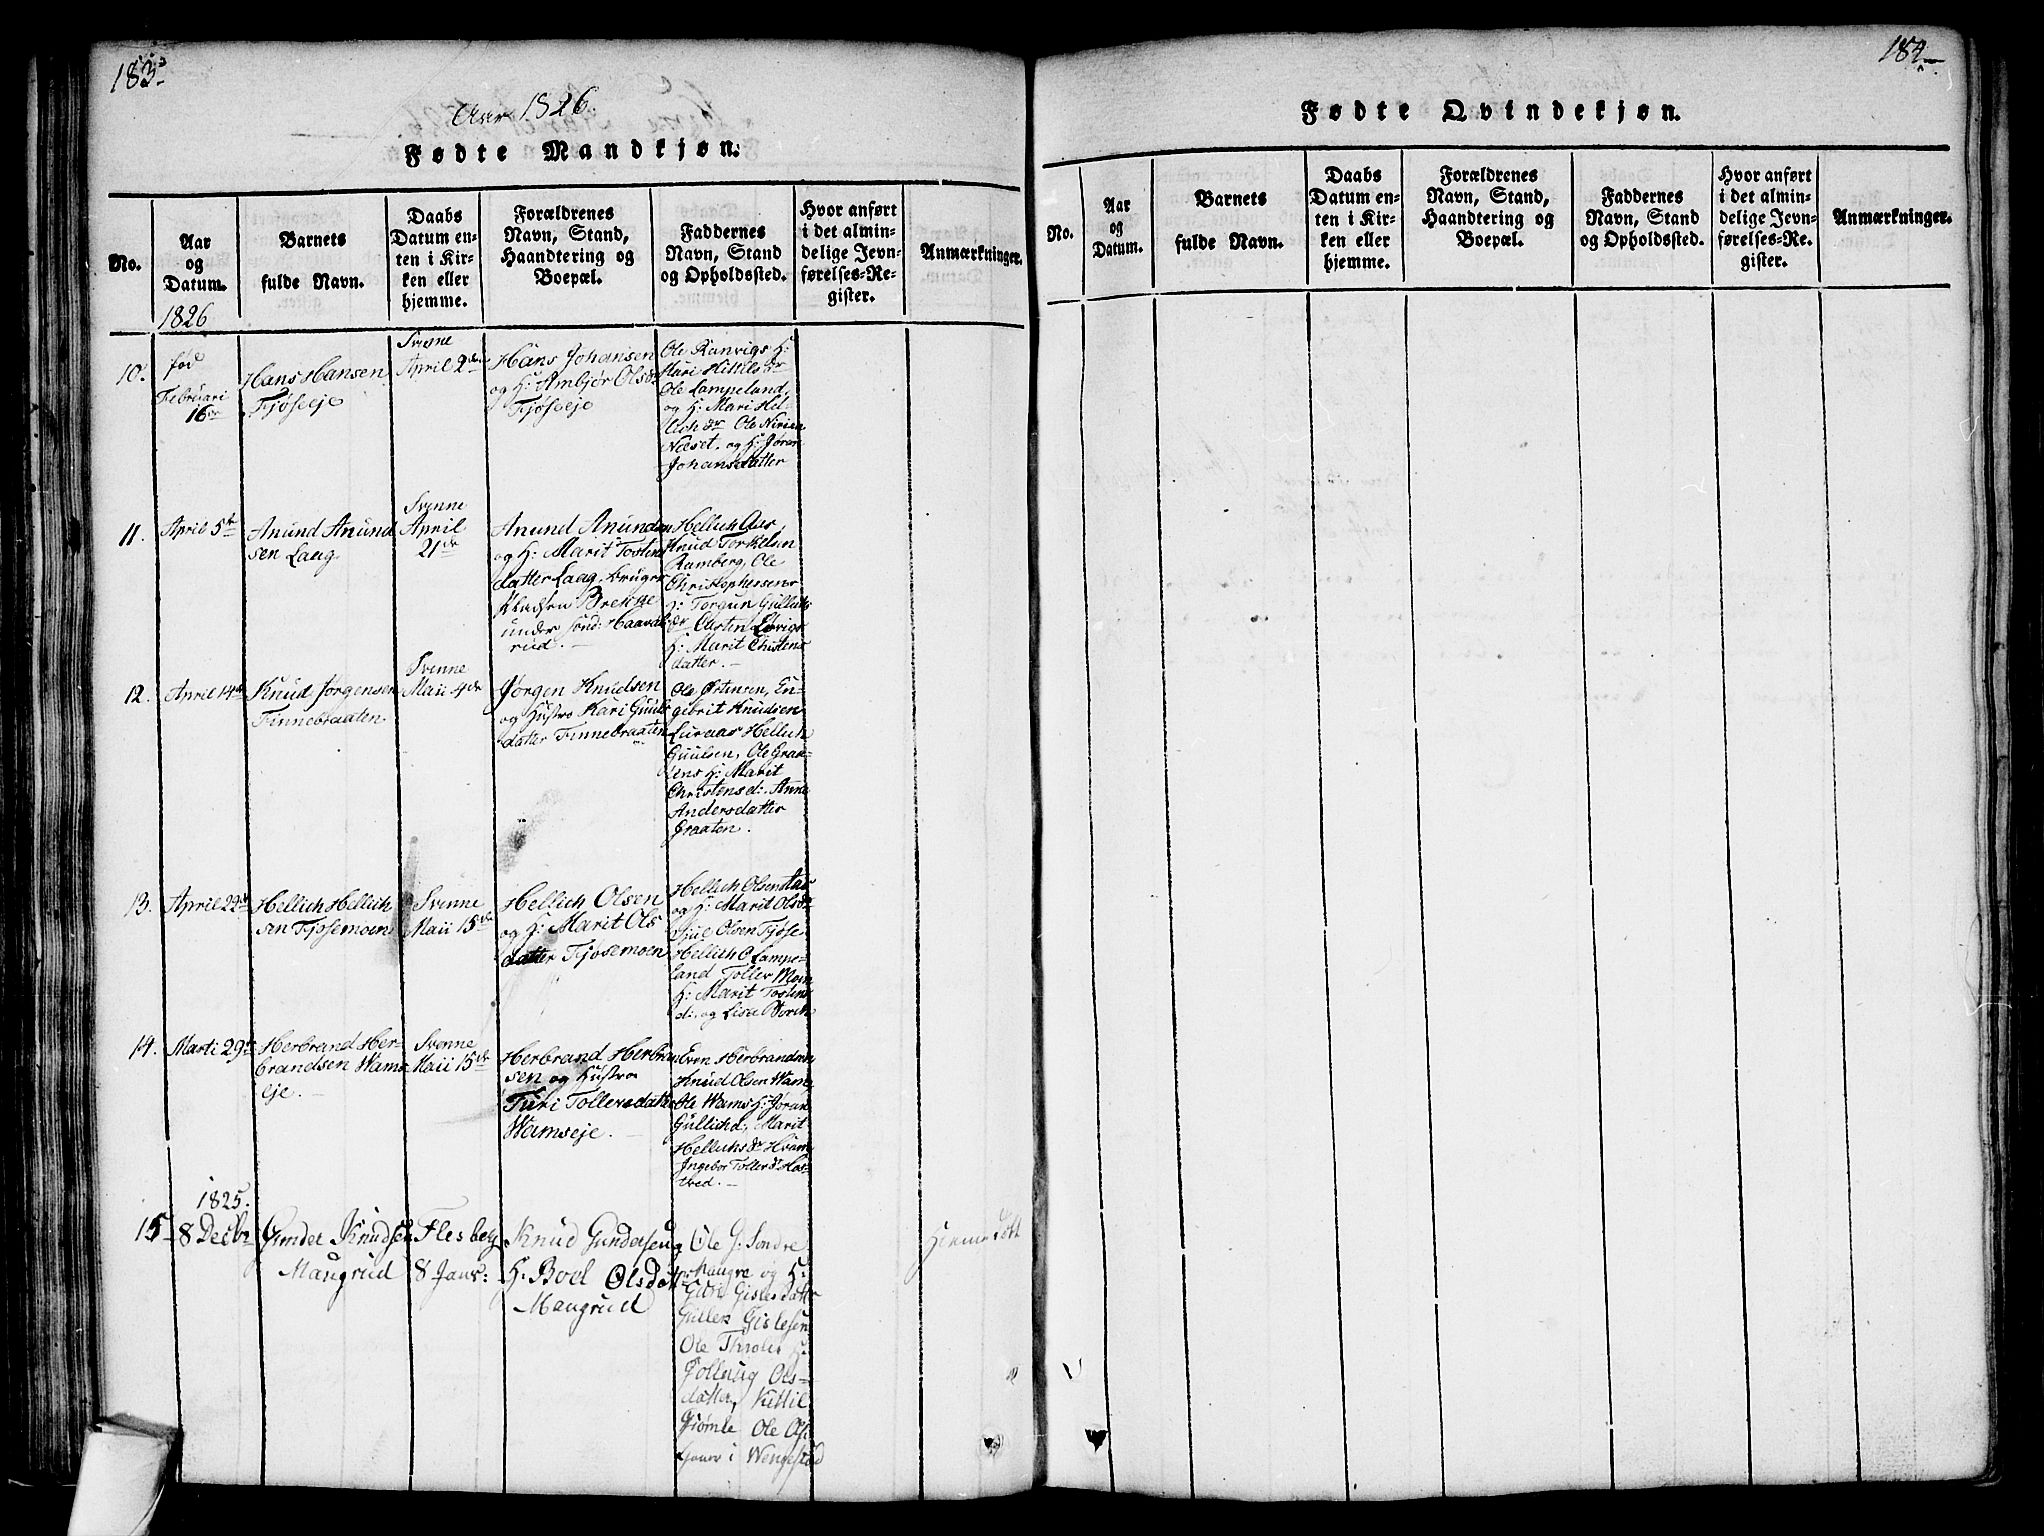 183
Aar 1826.
Fødte Mandkjøn.
No.
Aar
og
Datum.
Barnets
fulde Navn.
Daabs
Datum en-
ten i Kir-
ken eller
hjemme.
Forældrenes
Navn, Stand,
Haandtering og
Boepæl.
Faddernes
Navn, Stand
og Opholdssted.
Hvor anført
i det almin-
delige Jevn-
førelses-Re-
gister.
Anmærkninger.
1826
10.
fød
Februari
16de
Hans Hansen
Fjøseeje
Svene
April 2den
Hans Johansen
og H: Ambjør Olsdr
Fjøseeje
Ole Ranvigs H:
Kari Kittilsdr
Ole Lampeland,
og H: Mari Hel-
lichdr Ole
Næset, og H: Jøran
Johansdatter
11.
April 5te
Anund Anund
sen Laag.
Svenne
April
21de
Anund Anundsen
og H: Marit Tosten
datter Laag, bruger
Pladsen Brekke
under sønd: Haavals
rud.
Hellich Aas,
Knud Torkelsen
Ramberg, Ole
Christophersens
H: Torgun Gullichs
dr Olsten
H: Marit Christens
datter.
12.
April 14de
Knud Jørgensen
Finnebraaten
Svenne
Maii 4de
Jørgen Knudsen
og Hustro Kari Guuls
datter Finnebraaten
Ole Østensen, En-
gebrit Knudsen
Luraas Hellich
Guulsen, Ole Braa-
tens H: Marit
Christensd: Anne
Andersdatter
Braaten.
13.
April 22de
Hellich Hellich
sen Fjøsemoen
Svenne
Maii 15de
Hellich Olsen
og H: Marit Ols
datter Fjøsemoen
Hellich Olsen Aas
og H: Marit Olsdr
Juul Olsen Fjøse
Hellich O. Lampe-
land Toller Moen
H: Marit Tostens
d: og Lisa Borch
14.
Marti 29de
Herbrand Her-
brandsen Wams
eje.
Svenne
Maii 15de
Herbrand Herbran
sen og Hustro
Turi Tollersdatter
Wamseje.
Even Herbrandsen
Knud Olsen Wams
Ole Wams H: Jøran
Gullichd: Marit
Hellichsdr Hvam
Ingebor Tollersdr Has-
tved.
1825.
15
8 Decbr
Gunder Knudsen
Maugrud
Flesberg
8 Janr:
Knud Gundersen og
H: Boel Olsdatter
Maugrud
Ole G: Søndre
Maugre og H:
Guri Gislesdatter
Gullek Gislesen
Ole Throls H:
Gollaug Ols-
datter, Kittil
Tømle Ole Ols
Gaar i Wengestad
Hjemmedøbt
184
Fødte Qvindekjøn.
No.
Aar
og
Datum.
Barnets
fulde Navn.
Daabs
Datum en-
ten i Kir-
ken eller
hjemme.
Forældrenes
Navn, Stand,
Haandtering og
Boepæl.
Faddernes
Navn, Stand
og Opholdssted.
Hvor anført
i det almin-
delige Jevn-
førelses-Re-
gister.
Anmærkninger.